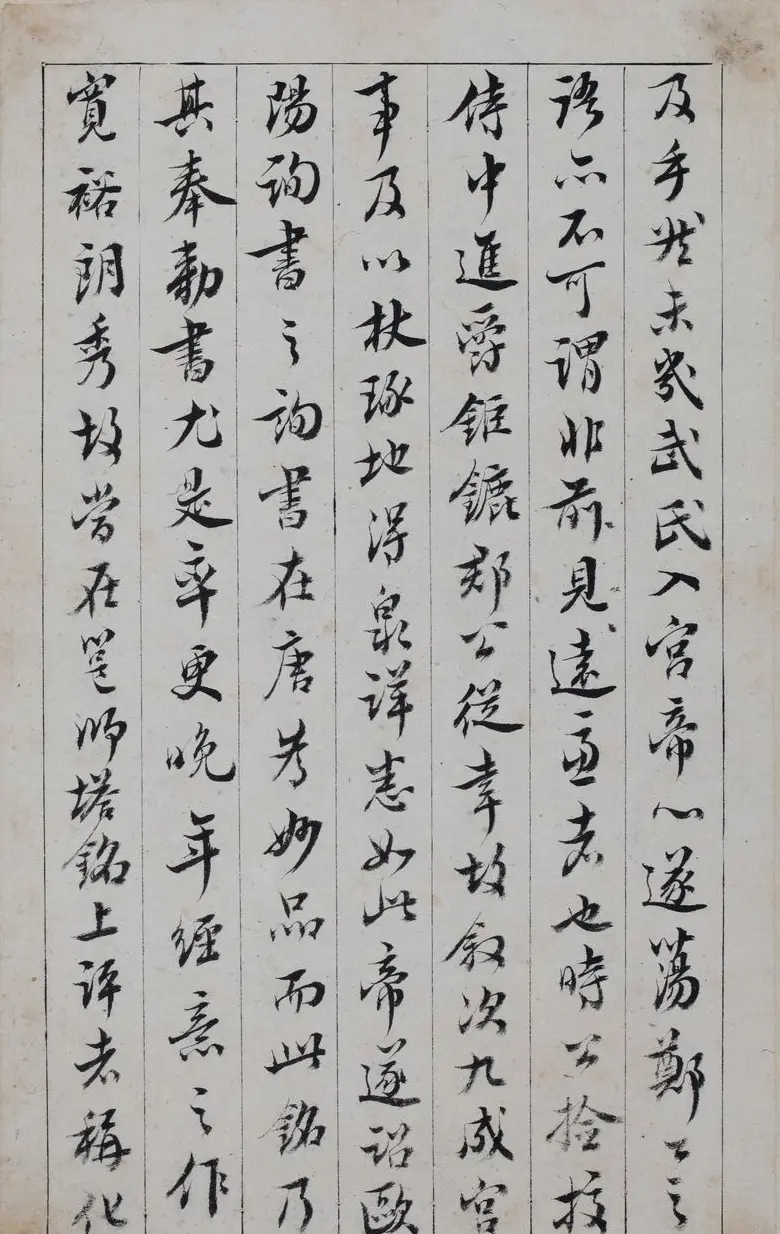 及手然未幾武氏入宮帝心遂蕩鄭公之
語亦不可謂非前見遠慮者也時公檢授
侍中進爵鉅鹿郡公從幸故敘次九成宮
事及以杖琢地得泉詳悉如此帝遂詔歐
陽詢書之詢書在唐為妙品而此銘乃
其奉勅書尤是率更晚年經意之作
寬裕朗秀故當在邕師塔銘上評者稱化